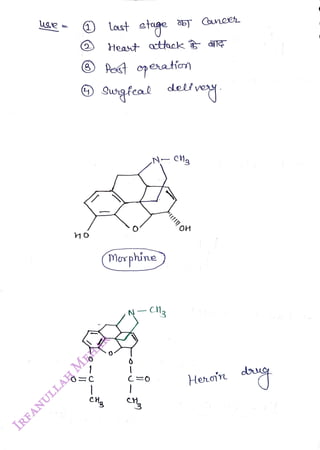 use = ① Last stage का Cancer
② Heart attack के बाद
③ Post operation
④ Surgical delivery.
N — CH3
HO
O
OH
Morphine
N — CH3
O
O O
O = C C = O
CH3 CH3
Heroin drug
IRFANULLAH